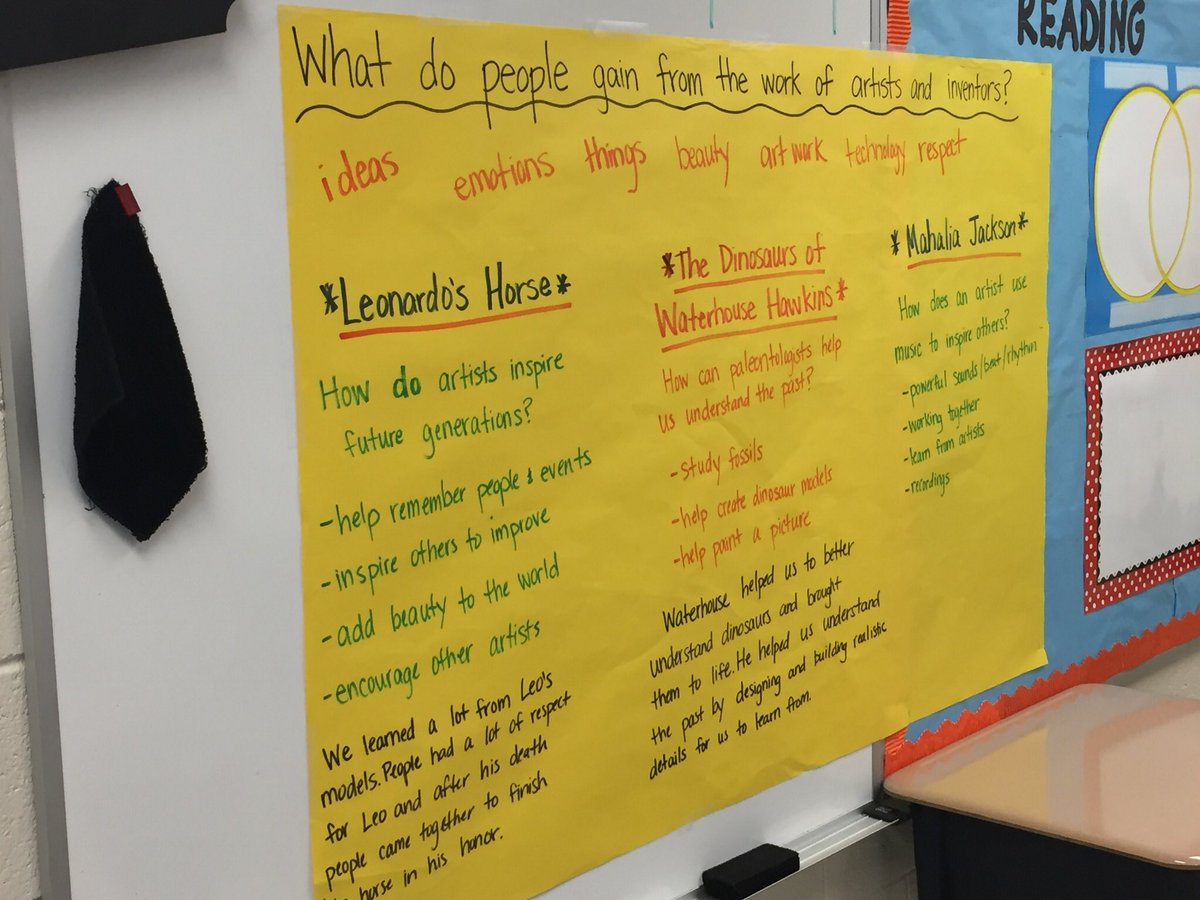 READING
What do people gain from the work of artists and inventors?
ideas emotions things beauty artwork technology respect
*Leonardo's Horse*
How do artists inspire
future generations?
-help remember people & events
-inspire others to improve
-add beauty to the world
-encourage other artists
We learned a lot from Leo's
models. People had a lot of respect
for Leo and after his death
people came together to finish
horse in his honor.
*The Dinosaurs of
Waterhouse Hawkins*
How can paleontologists help
us understand the past?
-study fossils
-help create dinosaur models
-help paint a picture
Waterhouse helped us to better
understand dinosaurs and brought
them to life. He helped us understand
the past by designing and building realistic
details for us to learn from.
*Mahalia Jackson*
How does an artist use
music to inspire others?
-powerful sounds/beat/rhythm
-working together
-learn from artists
-recordings